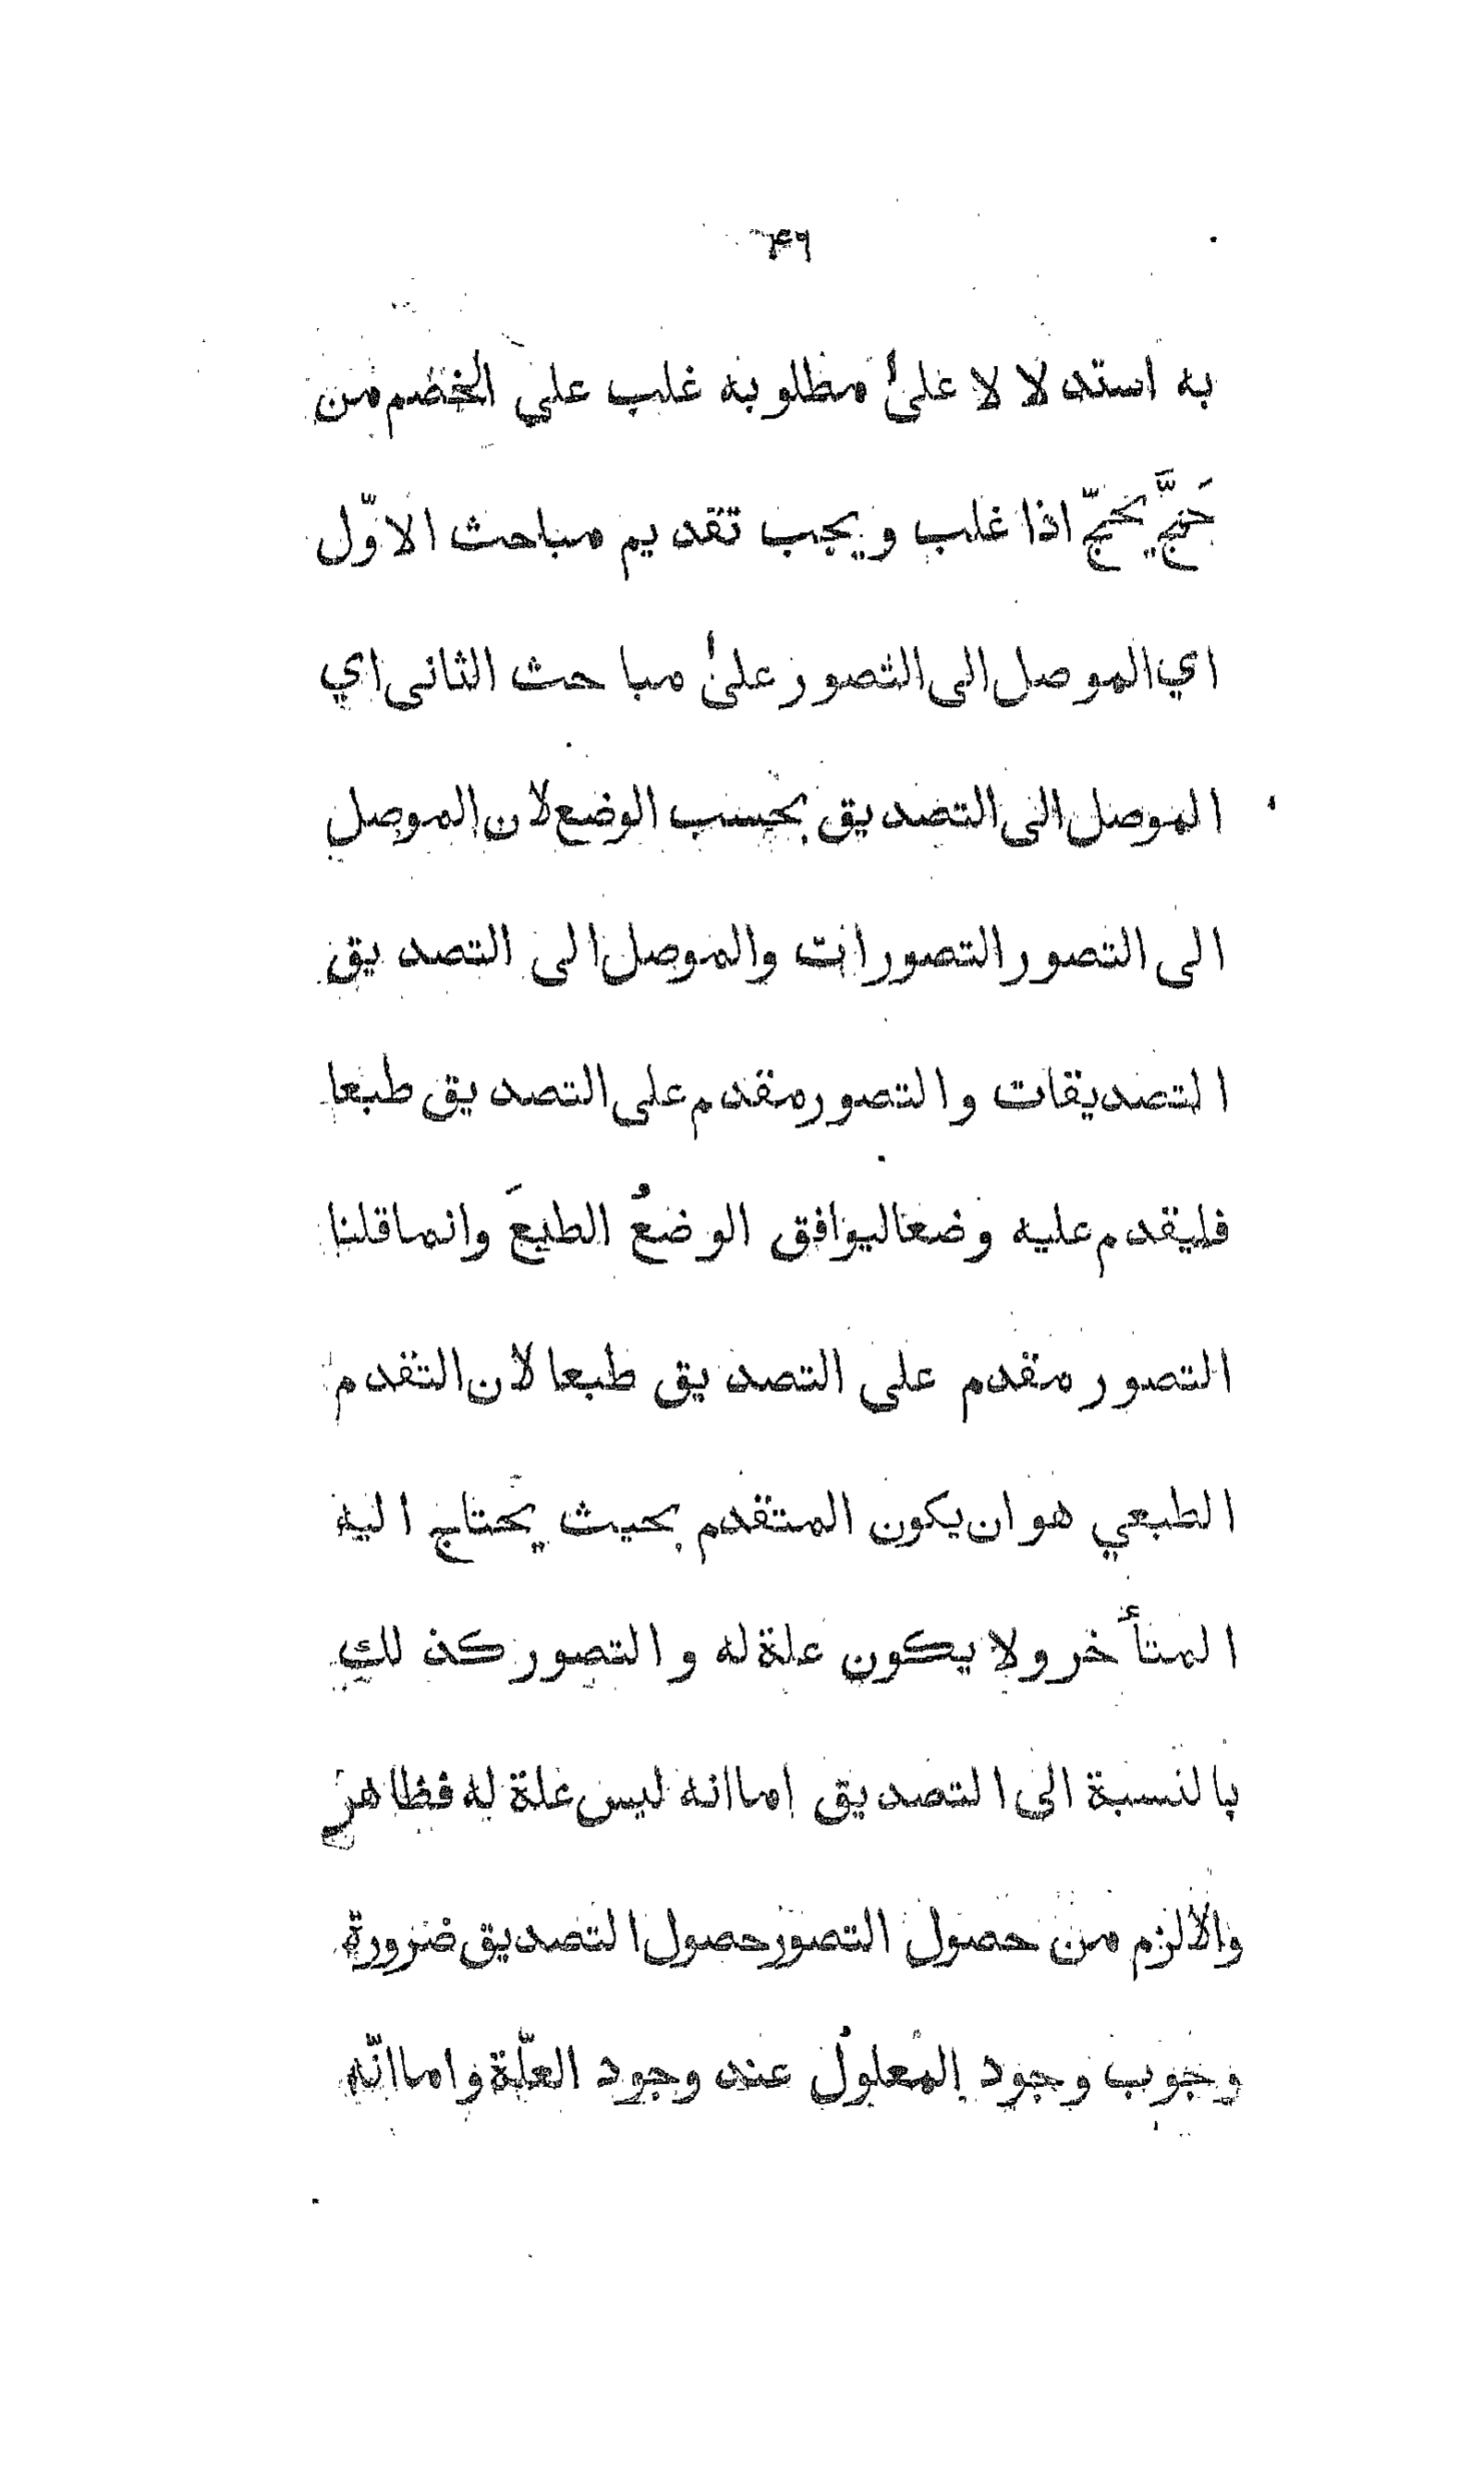 به استدلالا علىٰ مطلوبه غلب علي الخصم من
حَجَّ يحجّ اذا غلب ويجب تقديم مباحث الاوّل
اي الموصل الى التصور علىٰ مباحث الثانى اي
الموصل الى التصديق بحسب الوضع لان الموصل
الى التصور التصورات والموصل الى التصديق
التصديقات والتصور مقدم على التصديق طبعا
فليقدم عليه وضعا ليوافق الوضعُ الطبعَ وانما قلنا
التصور مقدم على التصديق طبعا لان التقدم
الطبعي هو ان يكون المتقدم بحيث يحتاج اليه
المتأخر ولا يكون علة له والتصور كذلك
بالنسبة الى التصديق اما انه ليس علة له فظاهر
والا لزم من حصول التصور حصول التصديق ضرورة
وجوب وجود المعلول عند وجود العلّة واما انّه